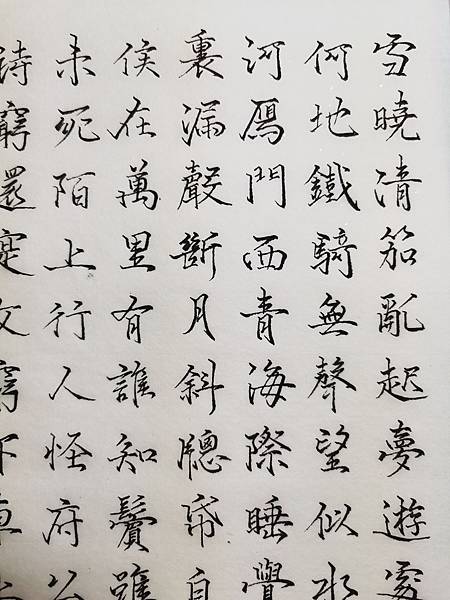 雪曉清笳亂起夢遊處
何地鐵騎無聲望似水
河鴈門西青海際睡覺
裏漏聲斷月斜牕帋自
侯在萬里有誰知鬢雖
未死陌上行人怪府公
詩窮還寔文窮下車上